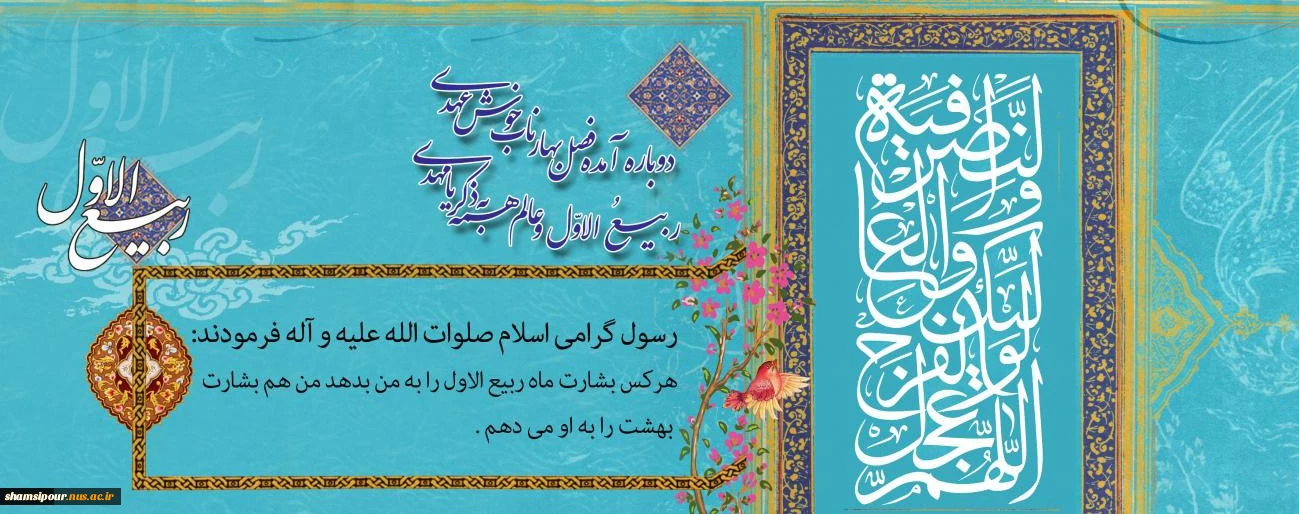 اللّهمّ عجّل لوليّك الفرج والعافية والنّصر
دوباره آمده فصل بهار ناب خوش عهدی
ربیعُ الاوّل و عالم همه به ذکر یا مهدی
ربیع الاوّل
رسول گرامی اسلام صلوات الله علیه و آله فرمودند:
هرکس بشارت ماه ربیع الاول را به من بدهد من هم بشارت
بهشت را به او می دهم .
shamsipour.nus.ac.ir